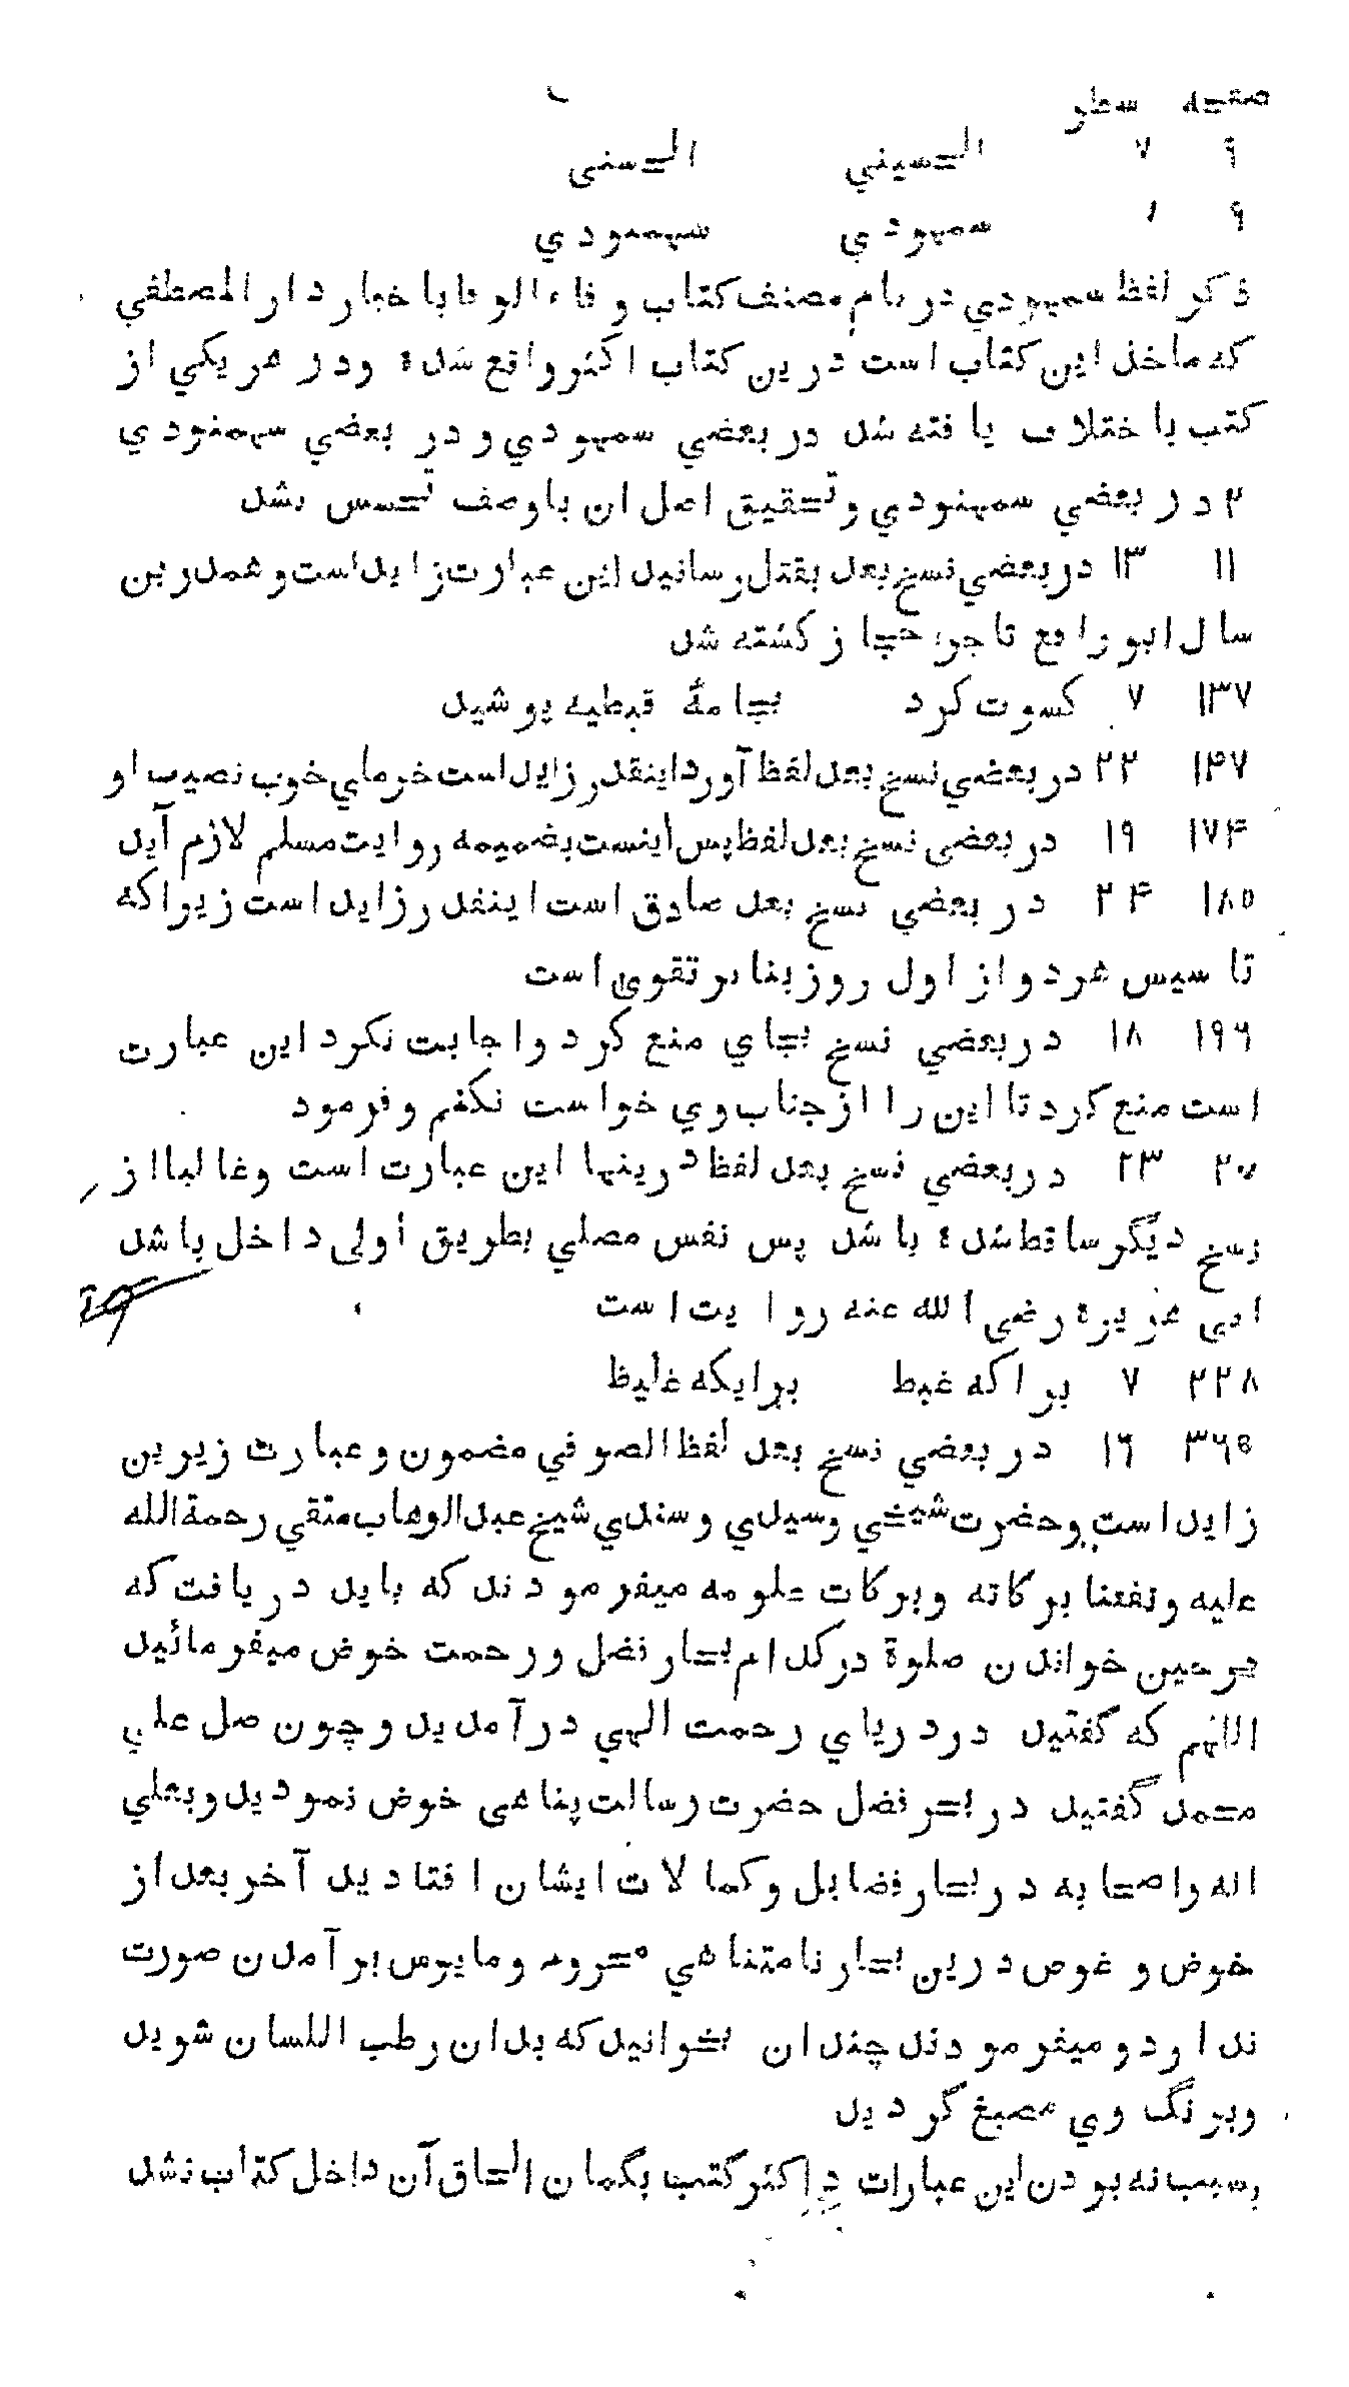 صفحه سطر
۹ ۷ الحسيني الحسنی
۹ ۱ سمهودي سهمنودي
ذکر لفظ سمهودي در نام مصنف کتاب وفاء الوفا باخبار دار المصطفي
که ماخذ این کتاب است درین کتاب اکثر واقع شده ودر هر یکي از
کتب باختلاف یافته شد در بعضي سمهودي و در بعضي سهمنودي
و در بعضي سمهنودي وتحقیق اصل ان باوصف تجسس نشد
۱۱ ۱۳ در بعضي نسخ بعد بقتل رسانید این عبارت زاید است و همدرین
سال ابو رافع تاجر حجاز کشته شد
۱۳۷ ۷ کسوت کرد بجامهٔ قبطیه پوشید
۱۴۷ ۲۲ در بعضي نسخ بعد لفظ آورد اینقدر زاید است خرمای خوب نصیب او
۱۷۴ ۱۹ در بعضی نسخ بعد لفظ پس اینست بضمیمه روایت مسلم لازم آید
۱۸۵ ۲۴ در بعضي نسخ بعد صادق است اینقدر زاید است زیرا که
تاسیس هر دو از اول روز بنا بر تقوی است
۱۹۶ ۱۸ در بعضي نسخ بجاي منع کرد واجابت نکرد این عبارت
است منع کرد تا این را از جناب وي خواست نکنم و فرمود
۲۰۷ ۲۳ در بعضي نسخ بعد لفظ درینها این عبارت است وغالبا از
نسخ دیگر ساقط شده باشد پس نفس مصلي بطریق اولی داخل باشد
ابی هریره رضی الله عنه روایت است
۲۲۸ ۷ برا که غبط برایکه غلیظ
۳۶۵ ۱۶ در بعضي نسخ بعد لفظ الصوفي مضمون و عبارت زیرین
زاید است وحضرت شیخي وسیدي وسندي شیخ عبد الوهاب متقي رحمة الله
علیه ونفعنا برکاته وبرکات علومه میفرمودند که باید دریافت که
در حین خواندن صلوة در کدام بحار فضل و رحمت خوض میفرمائید
اللهم که گفتید در دریاي رحمت الهي در آمدید و چون صل علي
محمد گفتید در بحر فضل حضرت رسالت پناهی خوض نمودید وبعلي
اله واصحابه در بحار فضایل وکمالات ایشان افتادید آخر بعد از
خوض و غوص درین بحار نامتناهي محروم و مایوس بر آمدن صورت
ندارد و میفرمودند چندان بخوانید که بدان رطب اللسان شوید
وبرنگ وي مصبغ گردید
بسبب نه بودن این عبارات در اکثر کتب بگمان الحاق آن داخل کتاب نشد